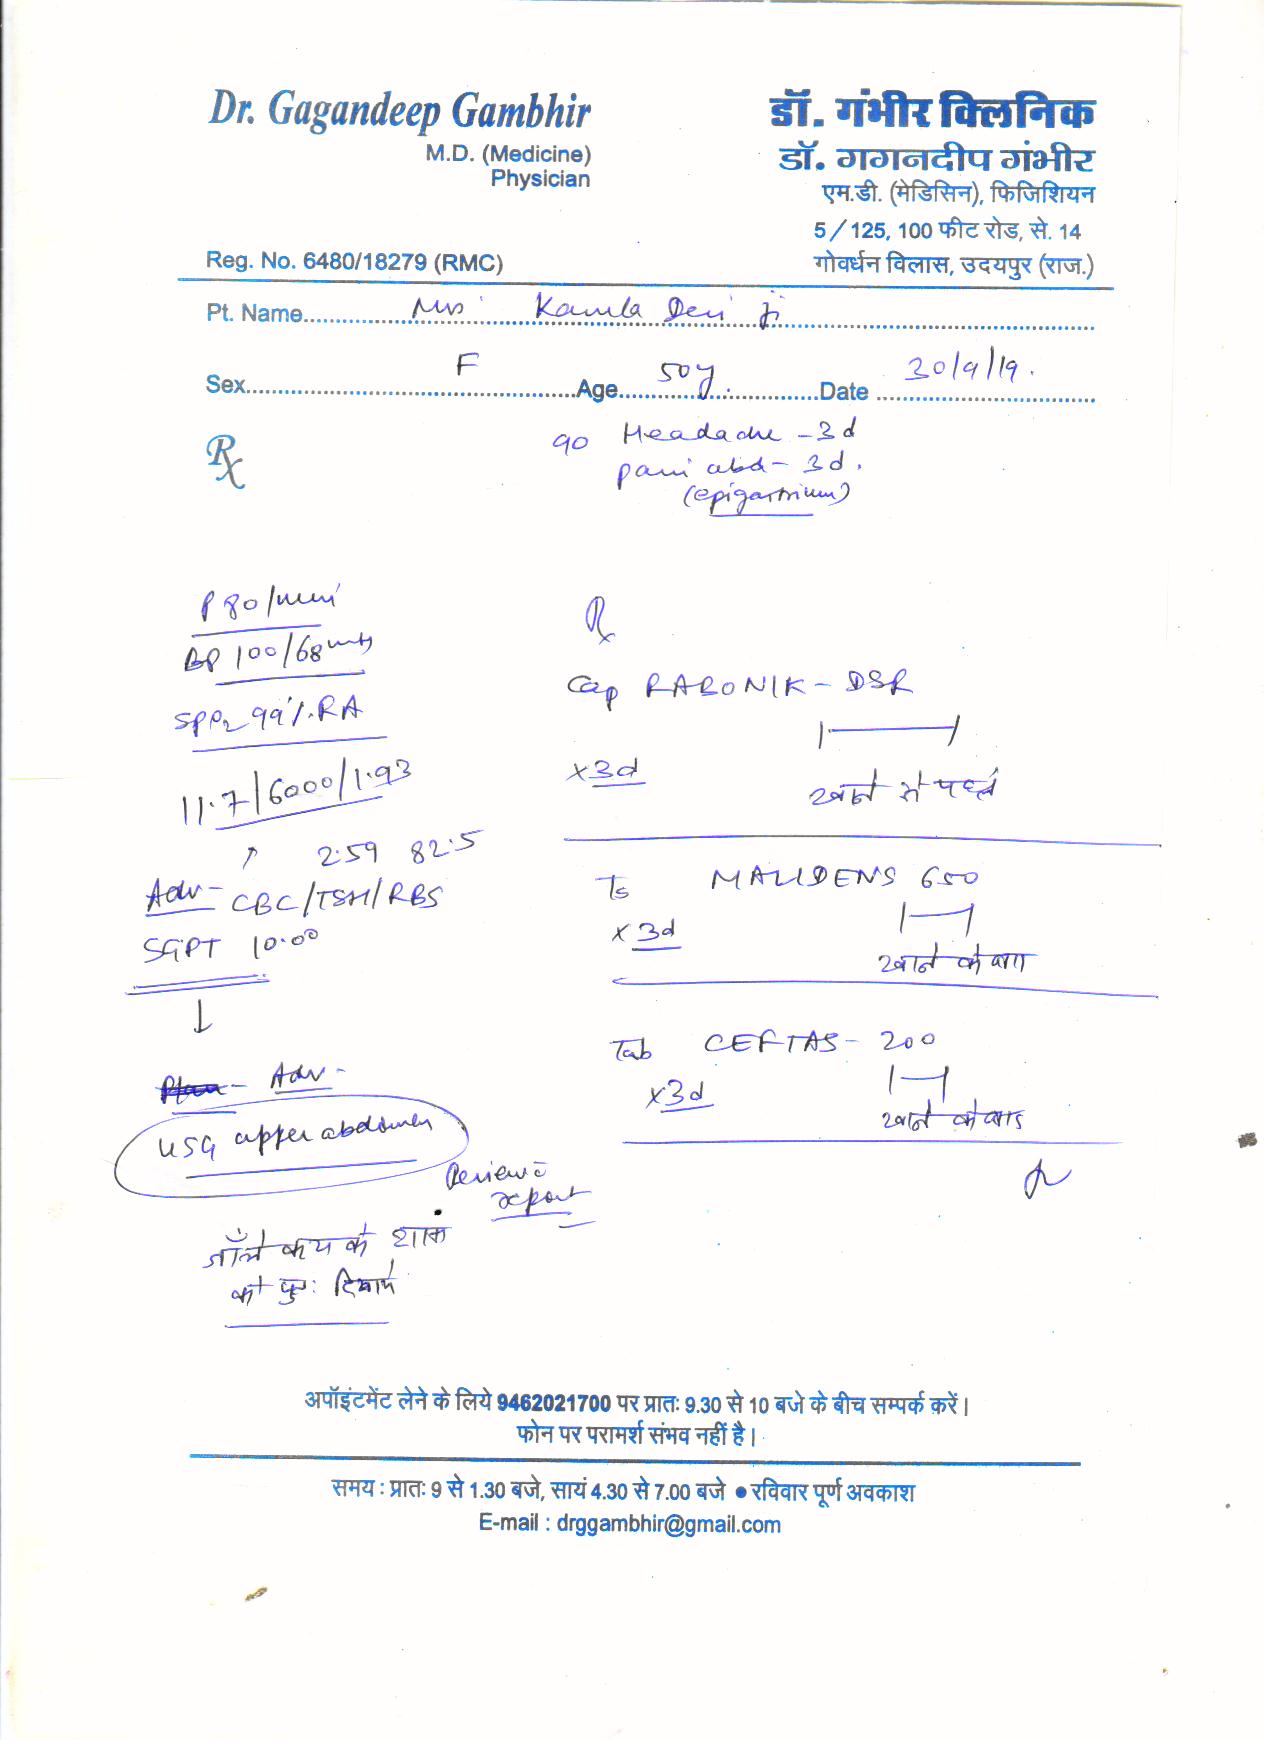 Dr. Gagandeep Gambhir
M.D. (Medicine)
Physician
Reg. No. 6480/18279 (RMC)
डॉ. गंभीर क्लिनिक
डॉ. गगनदीप गंभीर
एम.डी. (मेडिसिन), फिजिशियन
5/125, 100 फीट रोड, से. 14
गोवर्धन विलास, उदयपुर (राज.)
Pt. Name Mrs Kamla Devi ji
Sex F Age 50y Date 30/9/19.
Rx
Headache - 3d
pain abd - 3d.
(epigastrium)
P 80/min
BP 100/68
SPO2 99% RA
11.7/6000/1.93
2.59 82.5
Adv- CBC/TSH/RBS
SGPT 10.00
Adv-
USG upper abdomen
Review c̄
report
के शाम
को पुनः दिखायें
Rx
Cap RABONIK - DSR
x3d
खाने से पहले
MALIDENS 650
x 3d
खाने के बाद
Tab CEFTAS - 200
x3d
खाने के बाद
अपॉइंटमेंट लेने के लिये 9462021700 पर प्रातः 9.30 से 10 बजे के बीच सम्पर्क करें।
फोन पर परामर्श संभव नहीं है।
समय : प्रातः 9 से 1.30 बजे, सायं 4.30 से 7.00 बजे ● रविवार पूर्ण अवकाश
E-mail : drggambhir@gmail.com